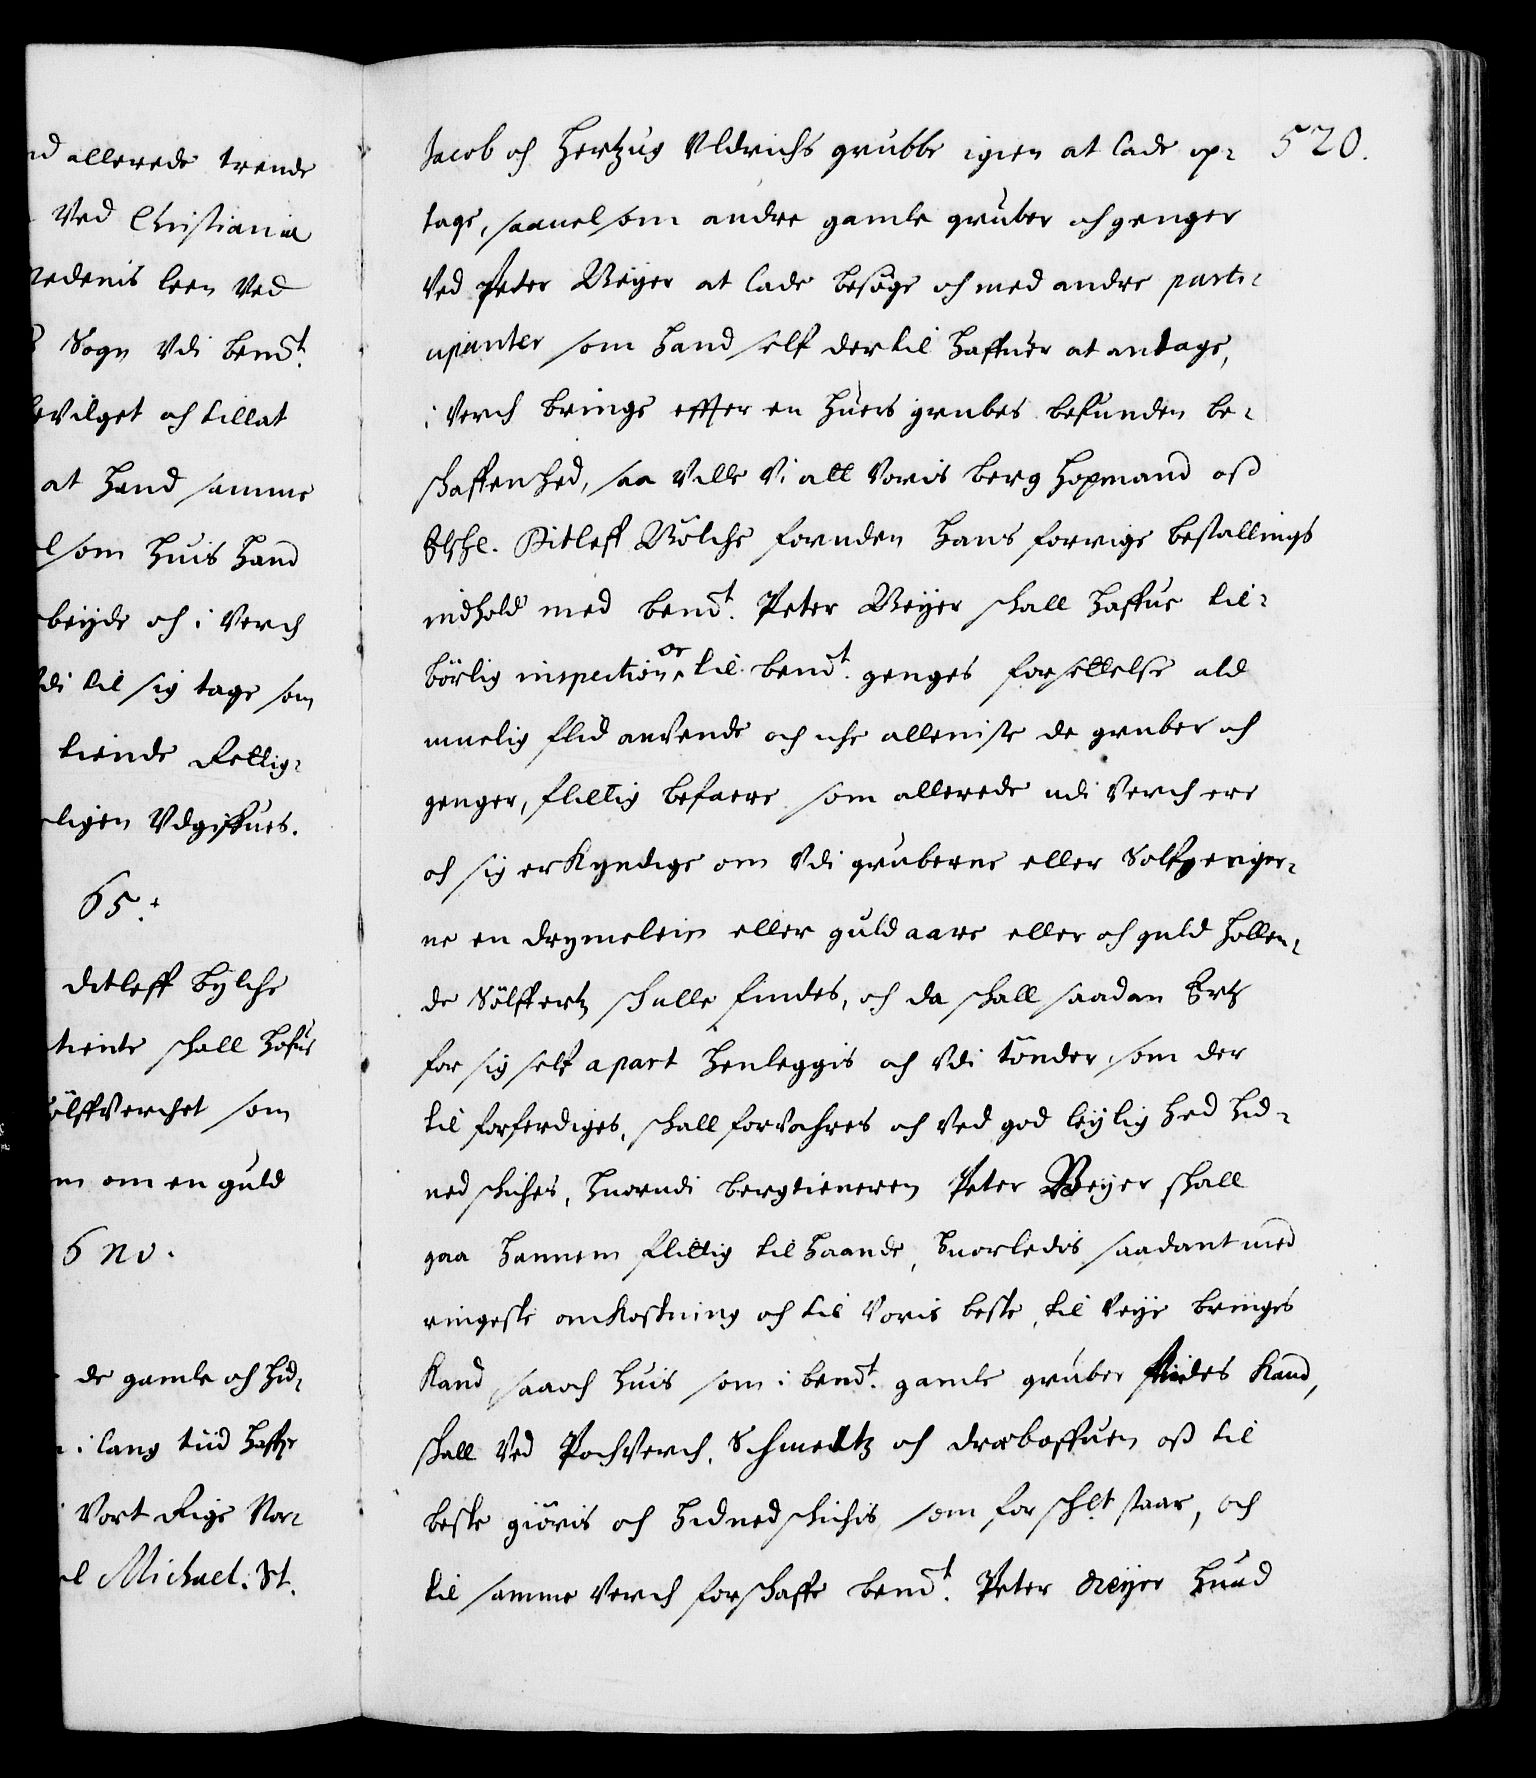 nd allerede trende
Ved Christiania
redenis leen Ved
Sogn Vdi bemt.
bevilget och tillat
at hand samme
som huis hand
beyde och i Verch
di til sig tage som
tiende Rettig-
ligen Vdgiffues.
65.
ditleff bylche
tiente skall hafue
sölffverchet som
m om en guld
6 no.
de gamle och hid-
i lang tiid haffr
Vort Rige Nor-
el Michael. St.
520.
Jacob och Hertzug Vldrichs grubbe igien at lade op-
tage, saauelsom andre gamle gruber och genger
Ved Peter Weyer at lade besöge och med andre parti-
cipanter som hand self dertil haffuer at antage,
i Verch bringe effter en huers grubes befunden be-
schaffenhed, saa Ville Vi att Voris berg Hopmand oß
Elschl. Ditleff Wölche foruden hans forrige bestallings
indhold med bemt. Peter Weyer schall haffue til-
börlig inspection, or til bemt. genges forsettelse ald
muelig flid anVende och iche alleniste de gruber och
genger, flittig befaere som allerede udi Verch ere
och sig erkyndige om Vdi gruberne eller Solfgenger-
ne en drymelein eller guld aare eller och guld hollen-
de Sölffertz schulle findes, och da schall saadan Ertz
for sig self apart henleggis och Vdi tönder, som der
til forferdiges, schall forvahres och Ved god leylig hed hid-
ned schiches, huorudi bergtieneren Peter Weyer shall
gaa hannem flittig til haande, huorledis saadant med
ringeste omkostning och til Voris beste, til Veye bringes
kand saaoch huis som i bemt. gamle gruber findes kand,
shall Ved Pochverch, Schmeltz och draboffuen oß til
beste giöris och hidned schichis som forschlt staar, och
til samme Verch forschaffe bemt. Peter Weyer huad